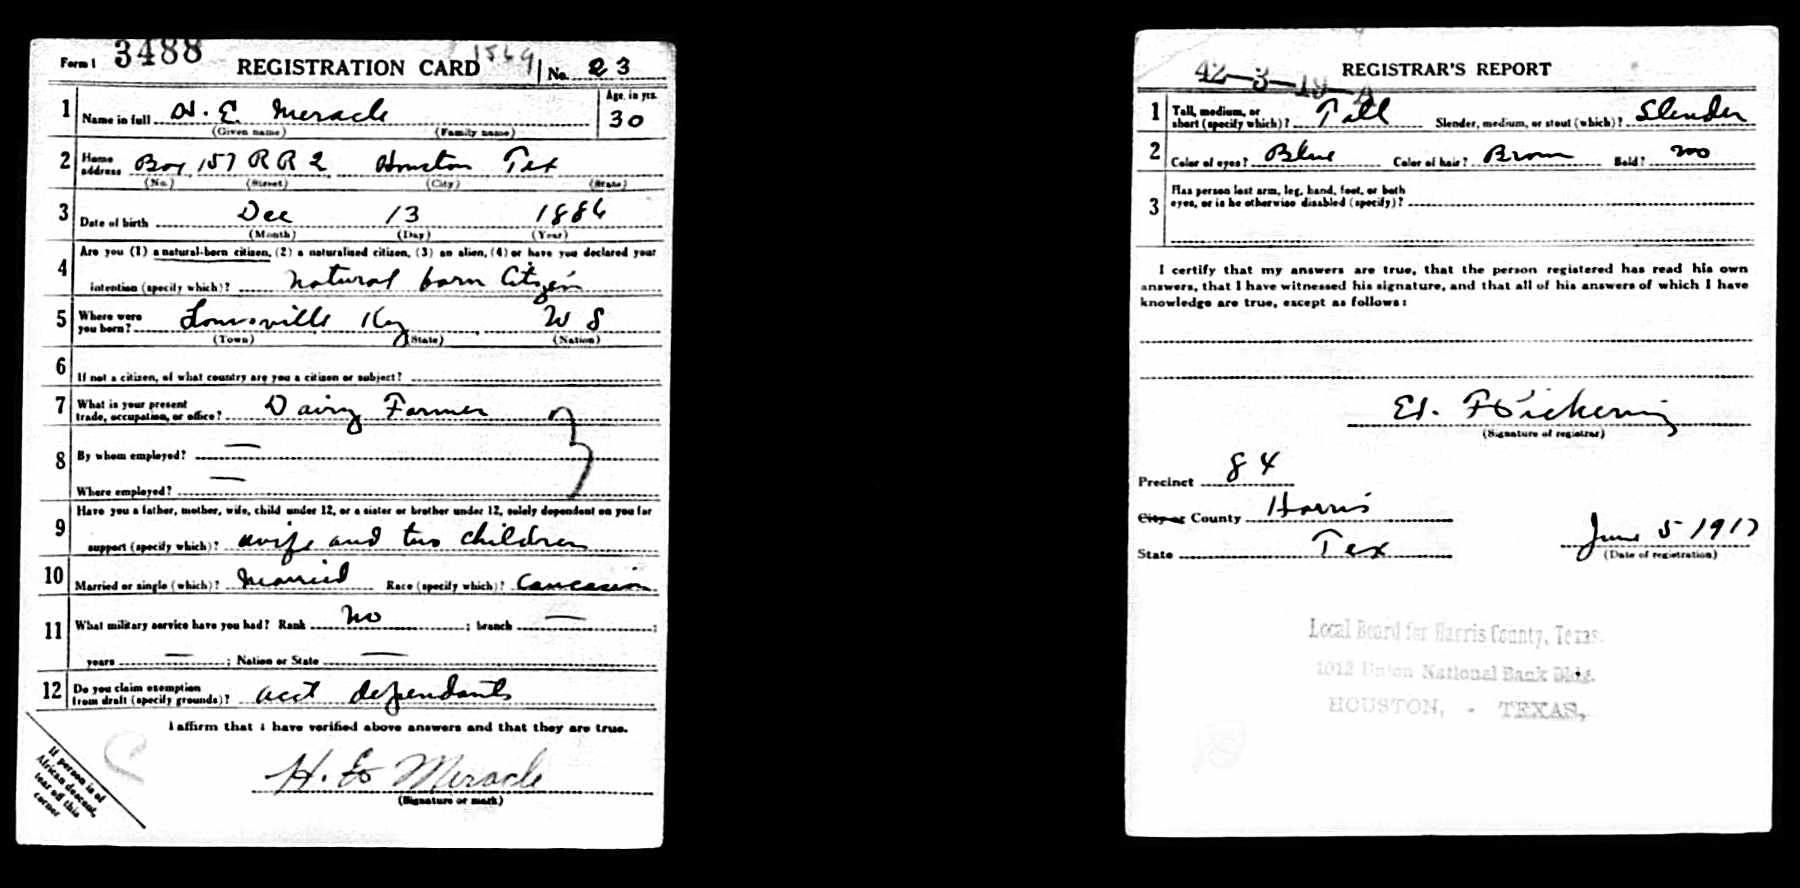 Form 1 3488 REGISTRATION CARD 1569 No. 23
1 Name in full H. E. Meracle Age, in yrs. 30
(Given name) (Family name)
2 Home address Box 157 R R 2 Houston Tex
(No.) (Street) (City) (State)
3 Date of birth Dec 13 1886
(Month) (Day) (Year)
4 Are you (1) a natural-born citizen, (2) a naturalized citizen, (3) an alien, (4) or have you declared your
intention (specify which)? Natural born Citizen
5 Where were you born? Louisville Ky U S
(Town) (State) (Nation)
6 If not a citizen, of what country are you a citizen or subject?
7 What is your present trade, occupation, or office? Dairy Farmer
8 By whom employed? —
Where employed? —
9 Have you a father, mother, wife, child under 12, or a sister or brother under 12, solely dependent on you for
support (specify which)? wife and two children
10 Married or single (which)? Married Race (specify which)? Caucasian
11 What military service have you had? Rank No ; branch — ;
years — ; Nation or State —
12 Do you claim exemption from draft (specify grounds)? acct dependants
I affirm that I have verified above answers and that they are true.
H. E. Meracle
(Signature or mark)
If person is of
African descent,
tear off this
corner
42-3-19-A REGISTRAR'S REPORT
1 Tall, medium, or short (specify which)? Tall Slender, medium, or stout (which)? Slender
2 Color of eyes? Blue Color of hair? Brown Bald? no
3 Has person lost arm, leg, hand, foot, or both
eyes, or is he otherwise disabled (specify)?
I certify that my answers are true, that the person registered has read his own
answers, that I have witnessed his signature, and that all of his answers of which I have
knowledge are true, except as follows:
Pickering
(Signature of registrar)
Precinct 84
City or County Harris
State Tex June 5 1917
(Date of registration)
Local Board for Harris County, Texas.
1012 Union National Bank Bldg.
HOUSTON, - TEXAS,